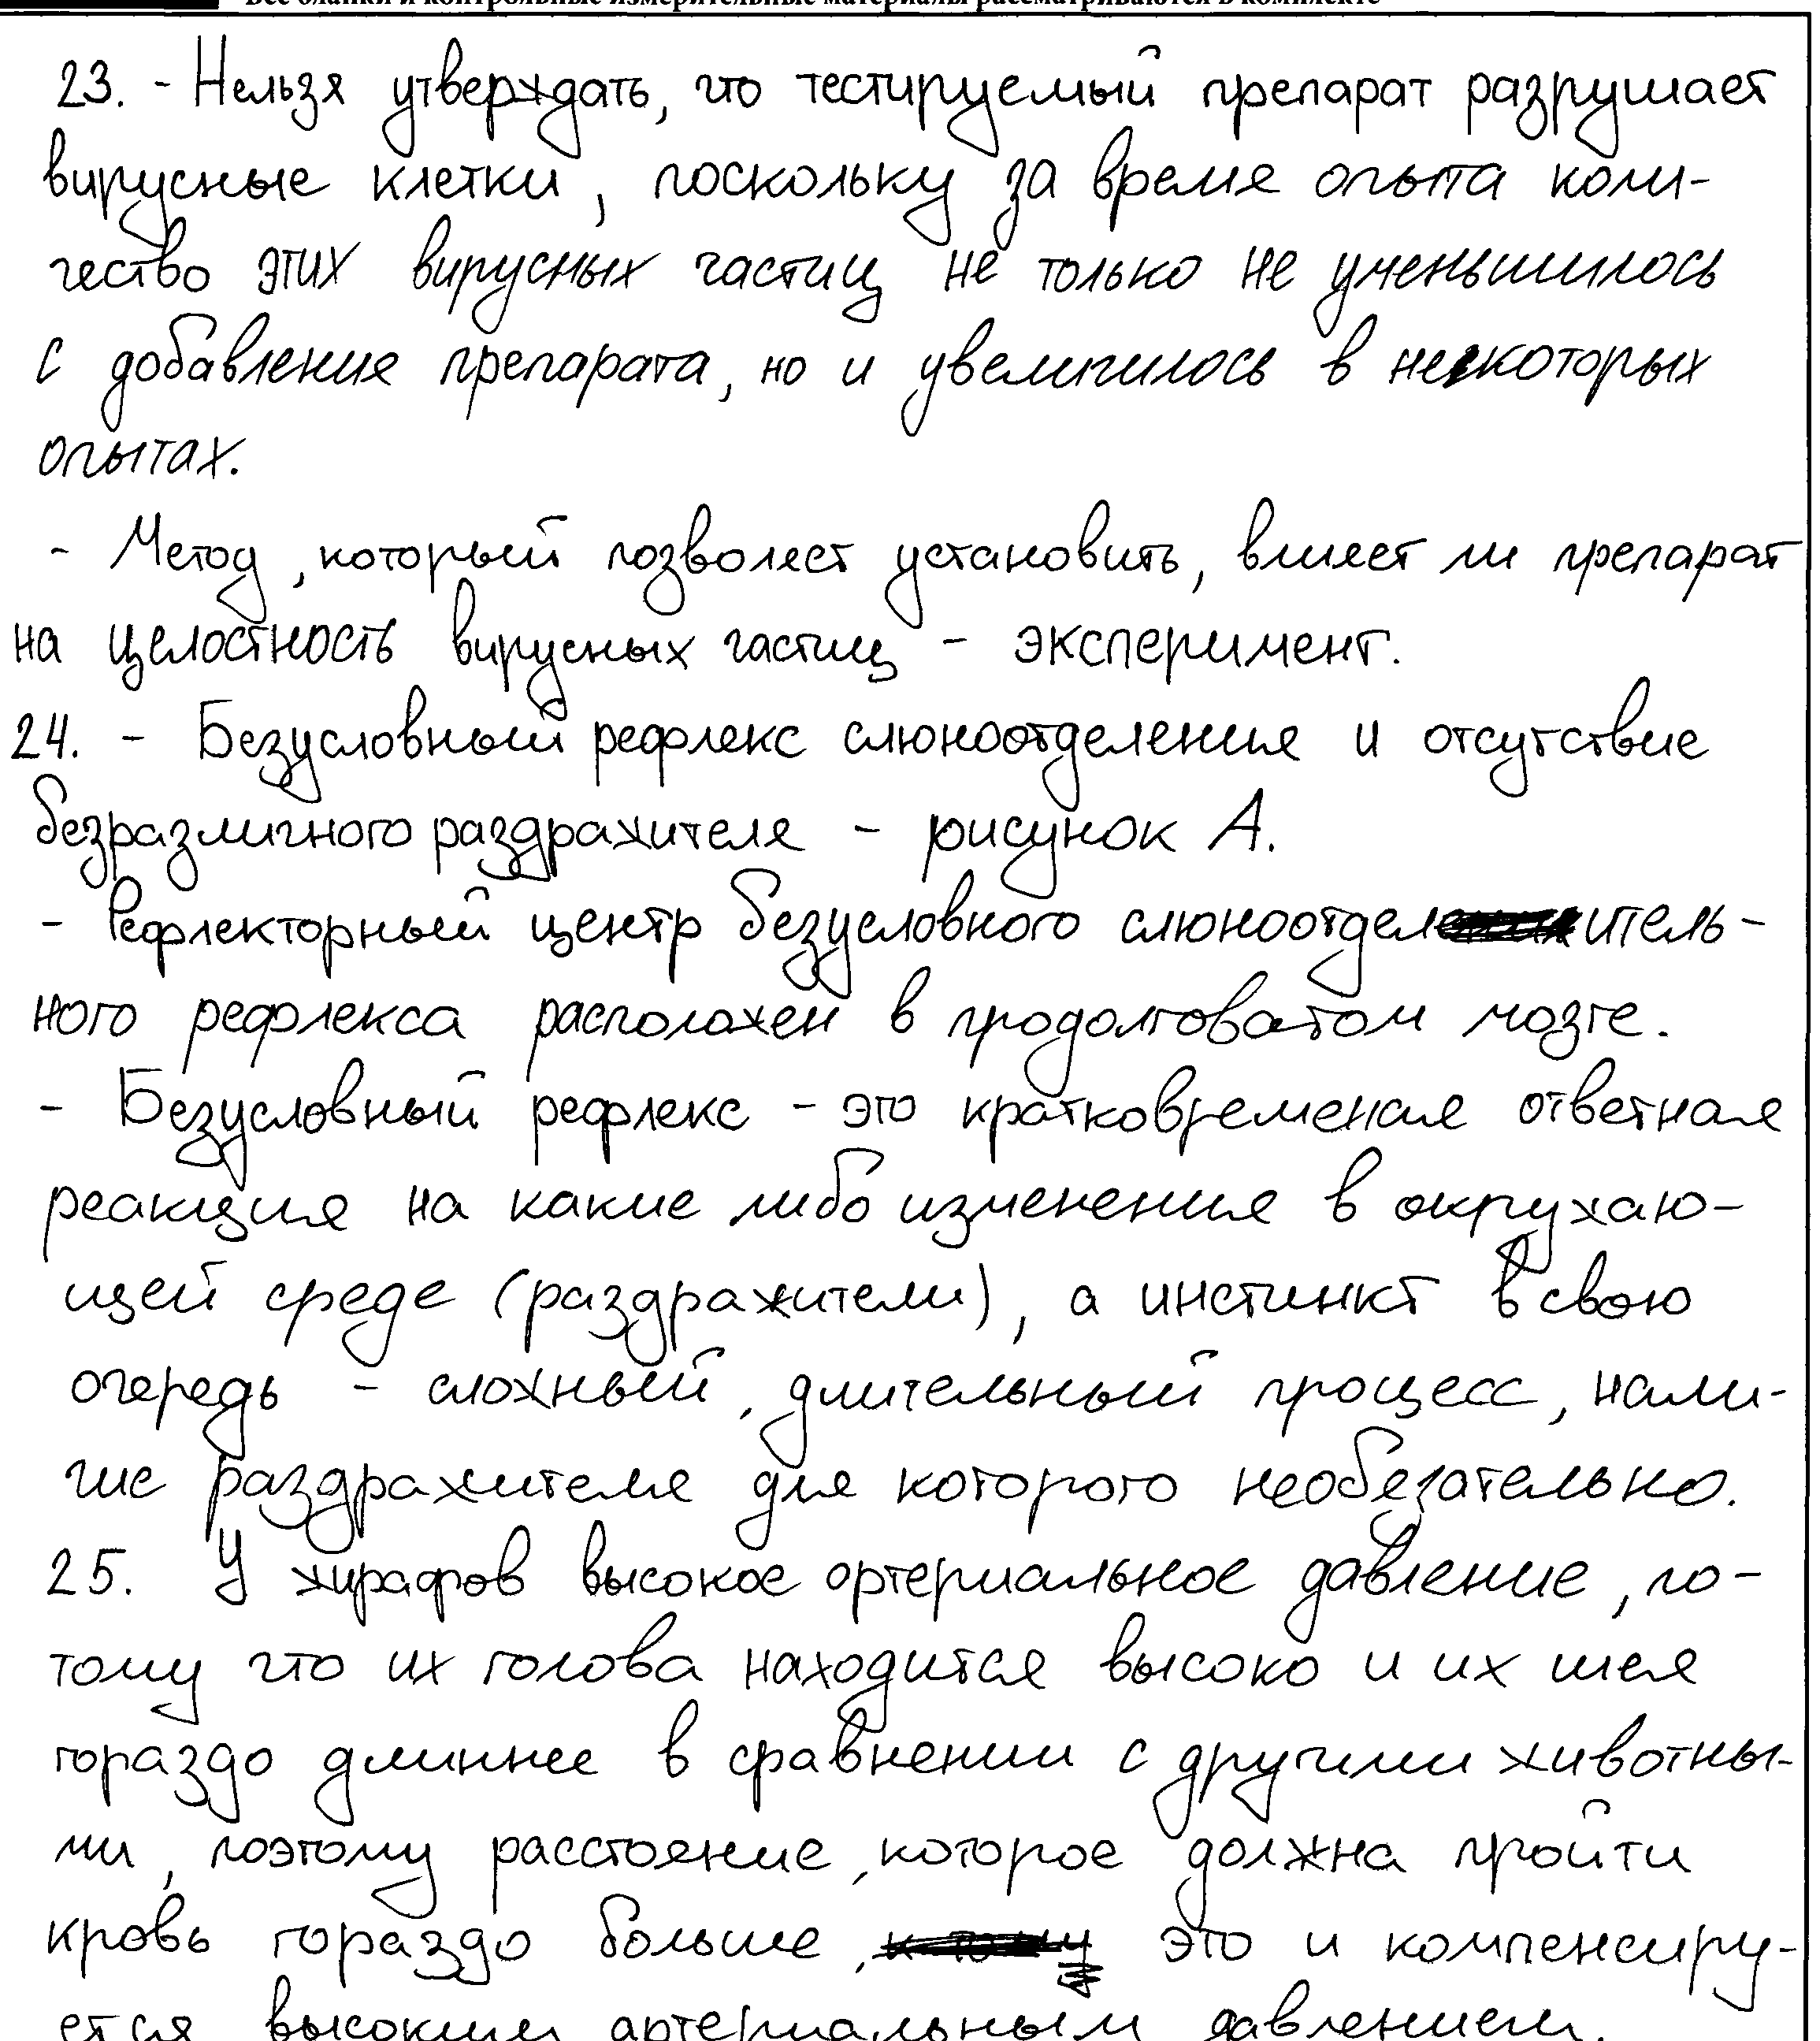 Все бланки и контрольные измерительные материалы рассматриваются в комплекте
23. - Нельзя утверждать, что тестируемый препарат разрушает
вирусные клетки, поскольку за время опыта коли-
чество этих вирусных частиц не только не уменьшилось
с добавление препарата, но и увеличилось в некоторых
опытах.
- Метод, который позволяет установить, влияет ли препарат
на целостность вирусных частиц - эксперимент.
24. - Безусловный рефлекс слюноотделения и отсутствие
безразличного раздражителя - рисунок А.
- Рефлекторный центр безусловного слюноотделитель-
ного рефлекса расположен в продолговатом мозге.
- Безусловный рефлекс - это кратковременая ответная
реакция на какие либо изменения в окружаю-
щей среде (раздражители), а инстинкт в свою
очередь - сложный, длительный процесс, нали-
чие раздражителя для которого необезательно.
25. У жирафов высокое артериальное давление, по-
тому что их голова находится высоко и их шея
гораздо длиннее в сравнении с другими животны-
ми, поэтому расстояние, которое должна пройти
кровь гораздо больше, это и компенсиру-
ется высоким артериальным давлением.